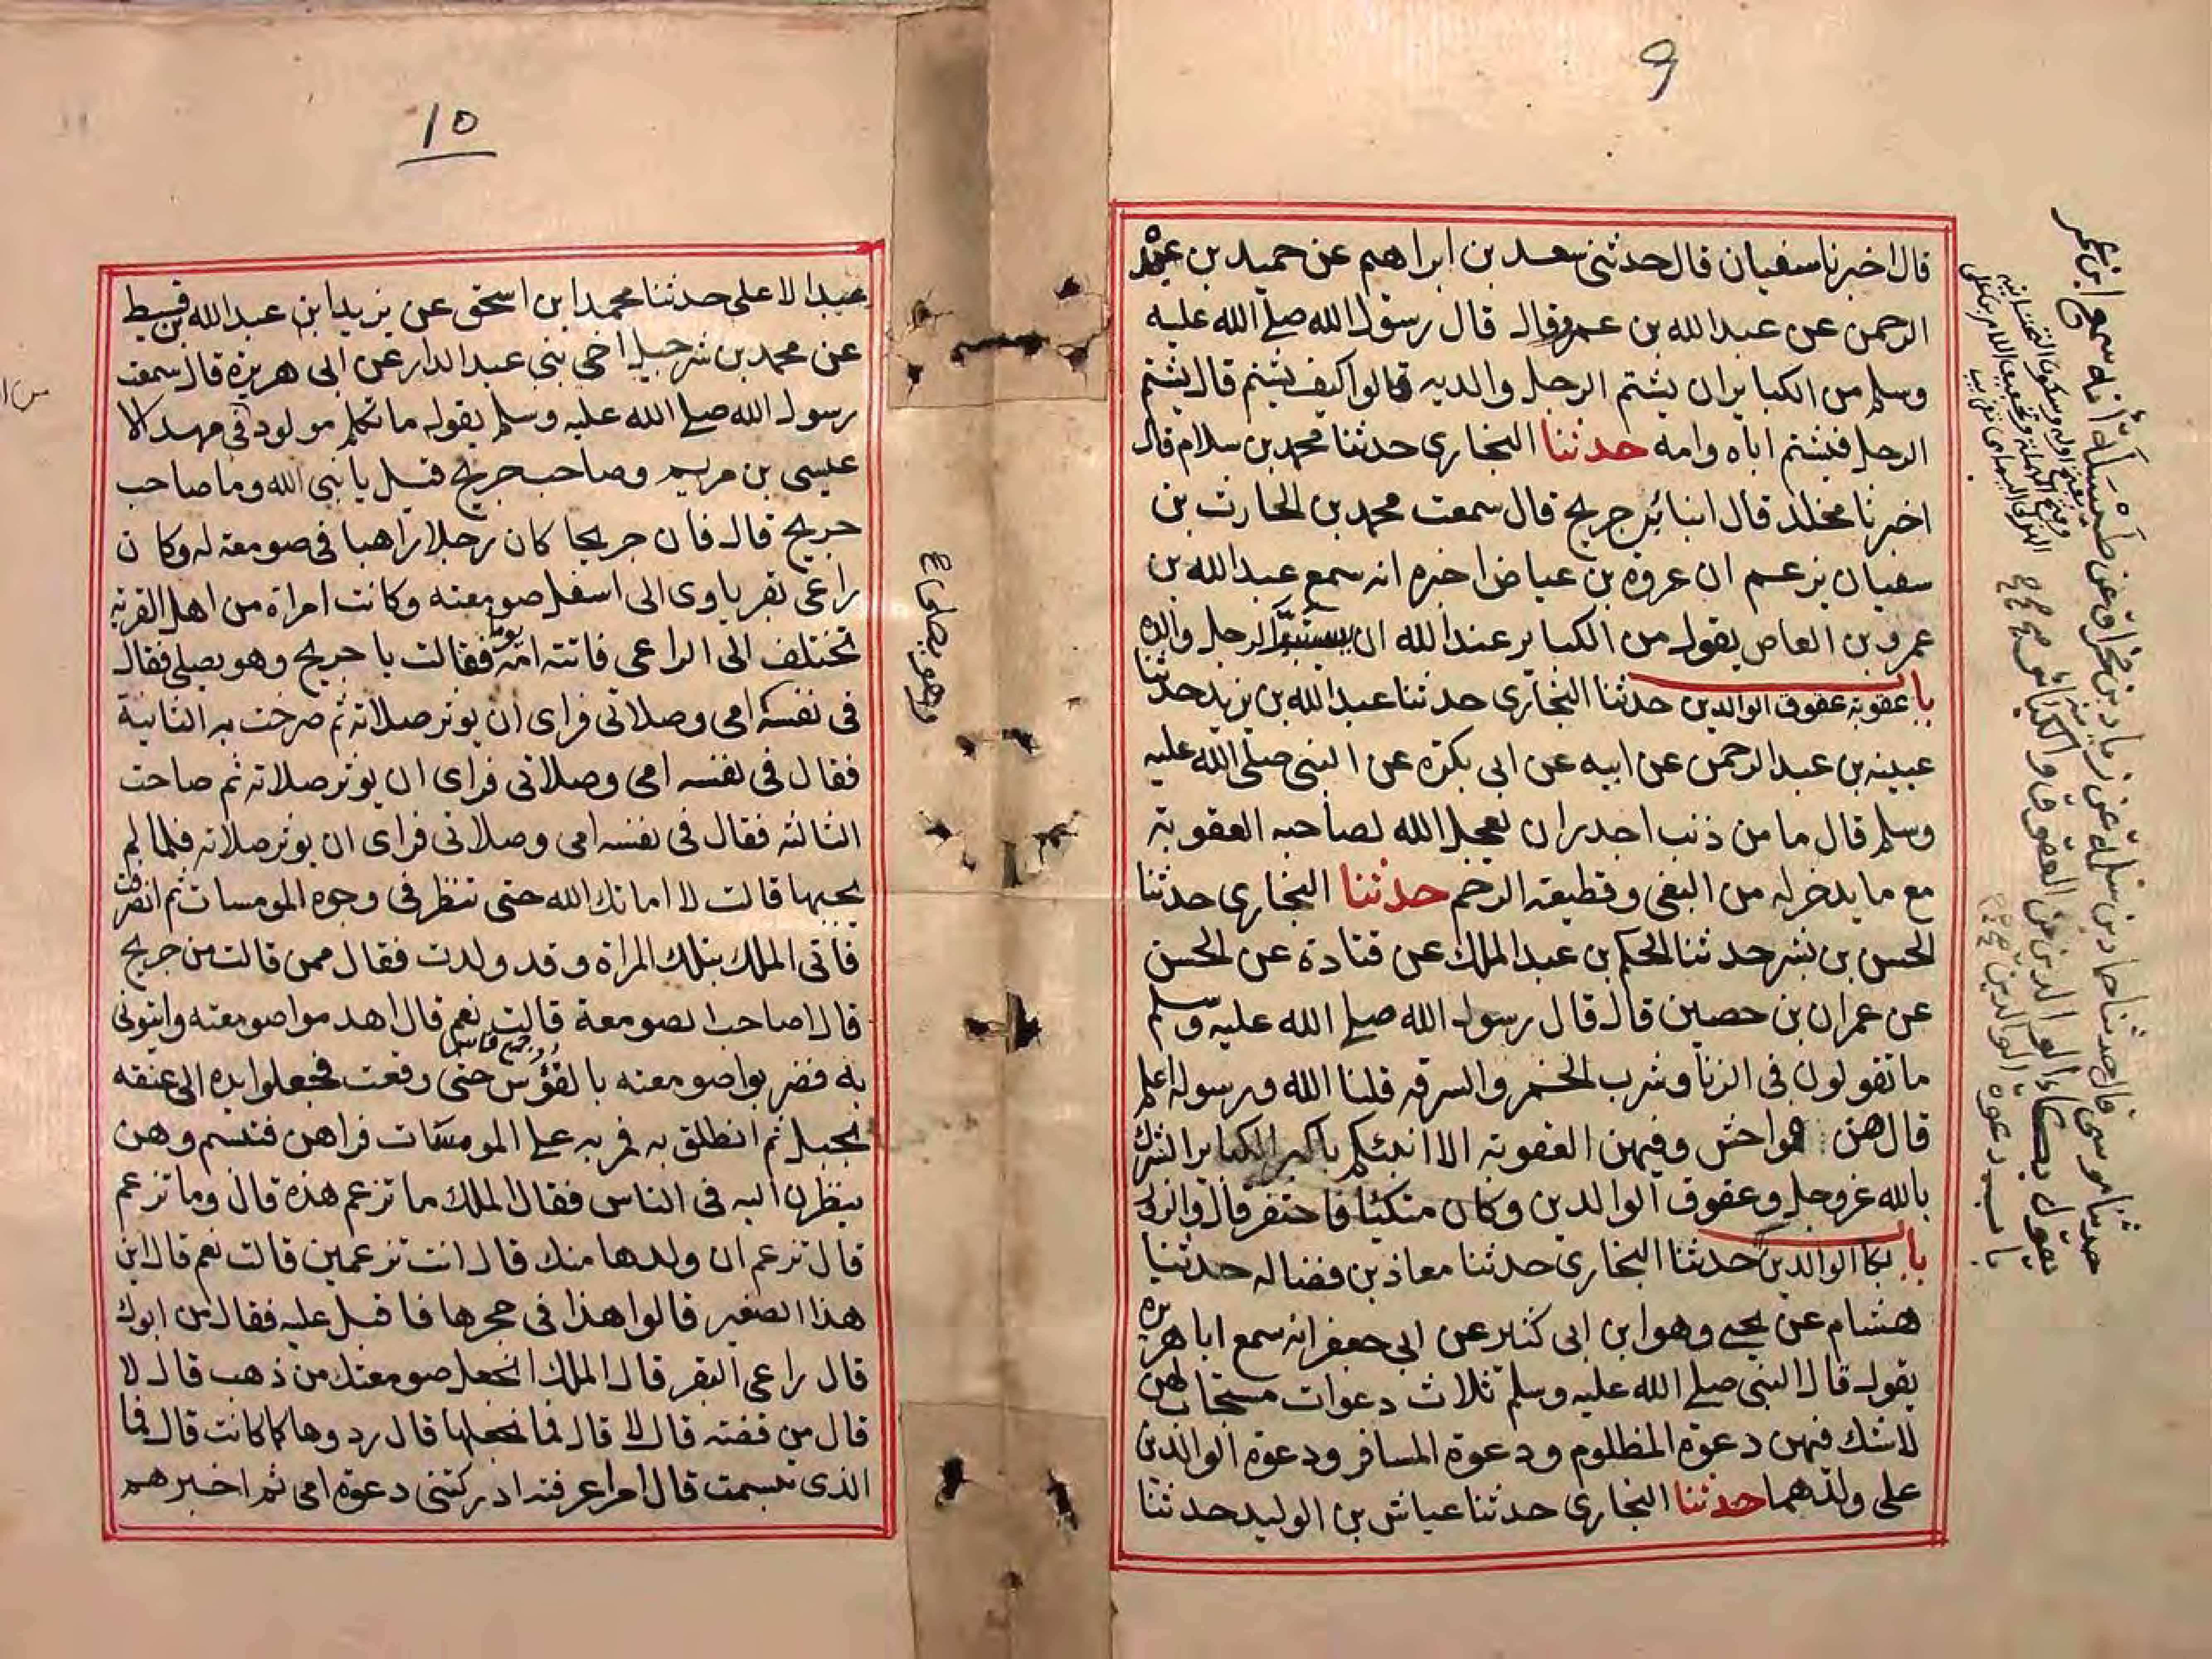 ٩
قال اخبرنا سفيان قال حدثني سعد بن ابراهيم عن حميد بن عبد
الرحمن عن عبد الله بن عمرو قال قال رسول الله صلى الله عليه
وسلم من الكباير ان يشتم الرجل والديه قالوا كيف يشتم قال يشتم
الرجل فيشتم اباه وامه حدثنا البخاري حدثنا محمد بن سلام قال
اخبرنا مخلد قال انبا ابن جريج قال سمعت محمد بن الحارث بن
سفيان يزعم ان عروة بن عياض اخبره انه سمع عبد الله بن
عمرو بن العاص يقول من الكباير عند الله ان يستسب الرجل والده
باب عقوبة عقوق الوالدين حدثنا البخاري حدثنا عبد الله بن يزيد حدثنا
عيينه بن عبد الرحمن عن ابيه عن ابي بكرة عن النبي صلى الله عليه
وسلم قال ما من ذنب اجدر ان يعجل الله لصاحبه العقوبة
مع ما يدخر له من البغي وقطيعة الرحم حدثنا البخاري حدثنا
الحسن بن بشر حدثنا الحكم بن عبد الملك عن قتادة عن الحسن
عن عمران بن حصين قال قال رسول الله صلى الله عليه وسلم
ما تقولون في الزنا وشرب الخمر والسرقه قلنا الله ورسوله اعلم
قال هن فواحش وفيهن العقوبة الا انبئكم باكبر الكباير الشرك
بالله عز وجل وعقوق الوالدين وكان متكئا فاحتفز قال والزور
باب بكا الوالدين حدثنا البخاري حدثنا معاذ بن فضاله حدثنا
هشام عن يحيى وهو ابن ابي كثير عن ابي جعفر انه سمع ابا هريره
يقول قال النبي صلى الله عليه وسلم ثلاث دعوات مستجاب لهن
لا شك فيهن دعوة المظلوم ودعوة المسافر ودعوة الوالدين
على ولدهما حدثنا البخاري حدثنا عياش بن الوليد حدثنا
حدثنا موسى قال حدثنا حماد بن سلمة عن زياد بن مخراق عن طيسلة أنه سمع ابن عمر
يقول بكاء الوالدين من العقوق والكبائر
باب دعوة الوالدين
١٠
عبد الاعلى حدثنا محمد ابن اسحق عن يزيد ابن عبد الله بن قسيط
عن محمد بن شرحبيل اخي بني عبد الدار عن ابي هريرة قال سمعت
رسول الله صلى الله عليه وسلم يقول ما تكلم مولود في مهد الا
عيسى بن مريم وصاحب جريج قيل يا نبي الله وما صاحب
جريج قال فان جريجا كان رجلا راهبا في صومعة له وكان
راعي بقر ياوى الى اسفل صومعته وكانت امراة من اهل القرية
تختلف الى الراعي فاتته امه يوما فقالت يا جريج وهو يصلي فقال
في نفسه امي وصلاتي فراى ان يوثر صلاته ثم صرخت به الثانية
فقال في نفسه امي وصلاتي فراى ان يوثر صلاته ثم صاحت
الثالثة فقال في نفسه امي وصلاتي فراى ان يوثر صلاته فلما لم
يجبها قالت لا اماتك الله حتى تنظر في وجوه المومسات ثم انصرفت
فاتى الملك بتلك المراة وقد ولدت فقال ممن قالت من جريج
قال اصاحب الصومعة قالت نعم قال اهدموا صومعته وايتوني
به فضربوا صومعته بالفؤس حتى وقعت فجعلوا يده الى عنقه
بحبل ثم انطلق به فمر به على المومسات فراهن فتبسم وهن
ينظرن اليه في الناس فقال الملك ما تزعم هذه قال وما تزعم
قال تزعم ان ولدها منك قال انت تزعمين قالت نعم قال اين
هذا الصغير قالوا هذا في حجرها فاقبل عليه فقال من ابوك
قال راعي البقر قال الملك انجعل صومعتك من ذهب قال لا
قال من فضة قال لا قال فما نجعلها قال ردوها كما كانت قال فما
الذي تبسمت قال امرا عرفته ادركتني دعوة امي ثم اخبرهم
وهو يصلي